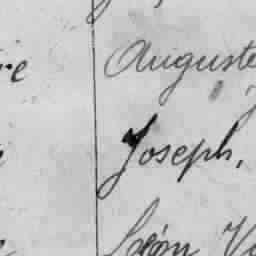 Auguste
Joseph,
Léon